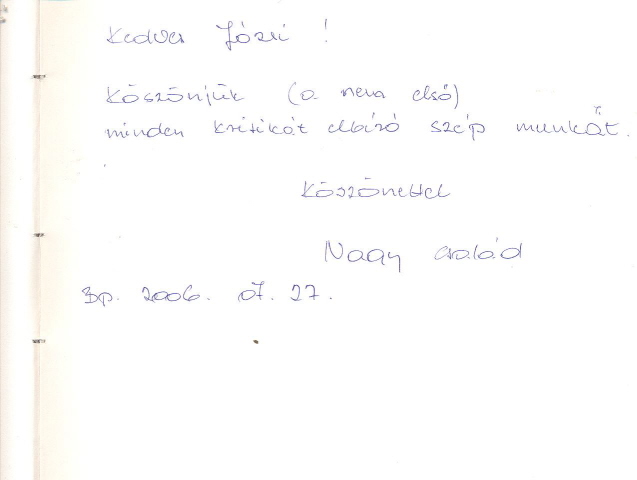 Kedves Józsi !
Köszönjük (a nem első)
minden kritikát elbíró szép munkát.
Köszönettel
Nagy család
Bp. 2006. 07. 27.